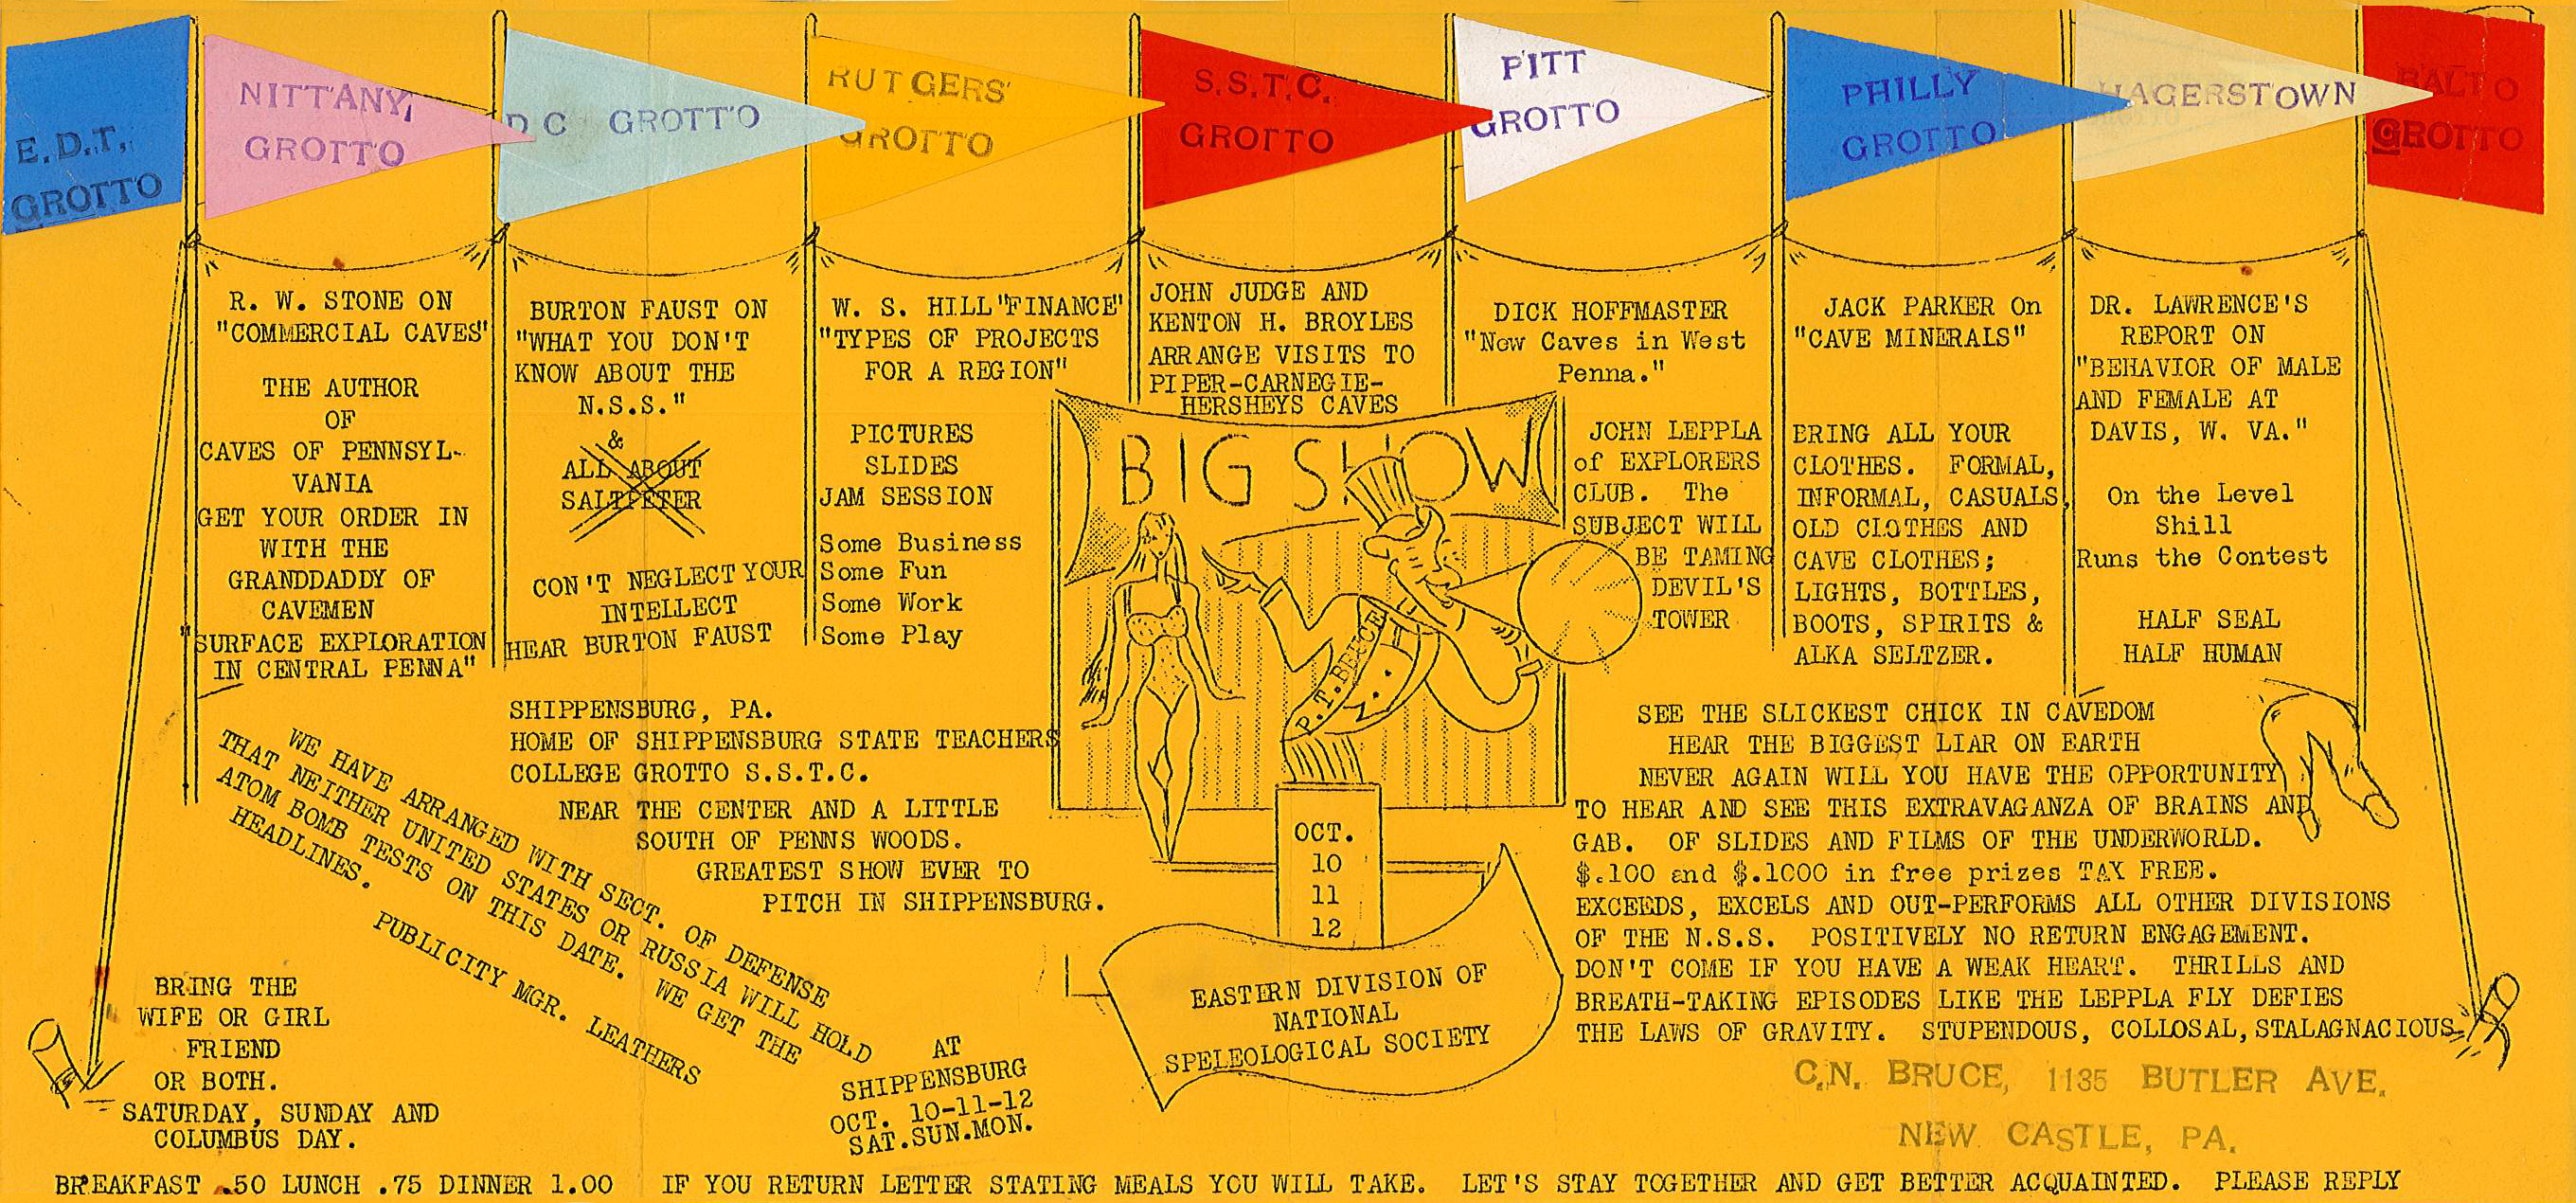 E.D.T.
GROTTO
NITTANY
GROTTO
D C GROTTO
RUTGERS'
GROTTO
S.S.T.C.
GROTTO
PITT
GROTTO
PHILLY
GROTTO
HAGERSTOWN
BALTO
GROTTO
R. W. STONE ON
"COMMERCIAL CAVES"
THE AUTHOR
OF
CAVES OF PENNSYL-
VANIA
GET YOUR ORDER IN
WITH THE
GRANDDADDY OF
CAVEMEN
"SURFACE EXPLORATION
IN CENTRAL PENNA"
BURTON FAUST ON
"WHAT YOU DON'T
KNOW ABOUT THE
N.S.S."
&
ALL ABOUT
SALTPETER
CON'T NEGLECT YOUR
INTELLECT
HEAR BURTON FAUST
W. S. HILL "FINANCE"
"TYPES OF PROJECTS
FOR A REGION"
PICTURES
SLIDES
JAM SESSION
Some Business
Some Fun
Some Work
Some Play
JOHN JUDGE AND
KENTON H. BROYLES
ARRANGE VISITS TO
PIPER-CARNEGIE-
HERSHEYS CAVES
BIG SHOW
P.T. BRUCE
DICK HOFFMASTER
"New Caves in West
Penna."
JOHN LEPPLA
of EXPLORERS
CLUB. The
SUBJECT WILL
BE TAMING
DEVIL'S
TOWER
JACK PARKER On
"CAVE MINERALS"
BRING ALL YOUR
CLOTHES. FORMAL,
INFORMAL, CASUALS,
OLD CLOTHES AND
CAVE CLOTHES;
LIGHTS, BOTTLES,
BOOTS, SPIRITS &
ALKA SELTZER.
DR. LAWRENCE'S
REPORT ON
"BEHAVIOR OF MALE
AND FEMALE AT
DAVIS, W. VA."
On the Level
Shill
Runs the Contest
HALF SEAL
HALF HUMAN
WE HAVE ARRANGED WITH SECT. OF DEFENSE
THAT NEITHER UNITED STATES OR RUSSIA WILL HOLD
ATOM BOMB TESTS ON THIS DATE. WE GET THE
HEADLINES.
PUBLICITY MGR. LEATHERS
SHIPPENSBURG, PA.
HOME OF SHIPPENSBURG STATE TEACHERS
COLLEGE GROTTO S.S.T.C.
NEAR THE CENTER AND A LITTLE
SOUTH OF PENNS WOODS.
GREATEST SHOW EVER TO
PITCH IN SHIPPENSBURG.
OCT.
10
11
12
EASTERN DIVISION OF
NATIONAL
SPELEOLOGICAL SOCIETY
SEE THE SLICKEST CHICK IN CAVEDOM
HEAR THE BIGGEST LIAR ON EARTH
NEVER AGAIN WILL YOU HAVE THE OPPORTUNITY
TO HEAR AND SEE THIS EXTRAVAGANZA OF BRAINS AND
GAB. OF SLIDES AND FILMS OF THE UNDERWORLD.
$.100 and $.1000 in free prizes TAX FREE.
EXCEEDS, EXCELS AND OUT-PERFORMS ALL OTHER DIVISIONS
OF THE N.S.S. POSITIVELY NO RETURN ENGAGEMENT.
DON'T COME IF YOU HAVE A WEAK HEART. THRILLS AND
BREATH-TAKING EPISODES LIKE THE LEPPLA FLY DEFIES
THE LAWS OF GRAVITY. STUPENDOUS, COLLOSAL, STALAGNACIOUS
BRING THE
WIFE OR GIRL
FRIEND
OR BOTH.
SATURDAY, SUNDAY AND
COLUMBUS DAY.
AT
SHIPPENSBURG
OCT. 10-11-12
SAT.SUN.MON.
C.N. BRUCE, 1135 BUTLER AVE.
NEW CASTLE, PA.
BREAKFAST .50 LUNCH .75 DINNER 1.00 IF YOU RETURN LETTER STATING MEALS YOU WILL TAKE. LET'S STAY TOGETHER AND GET BETTER ACQUAINTED. PLEASE REPLY